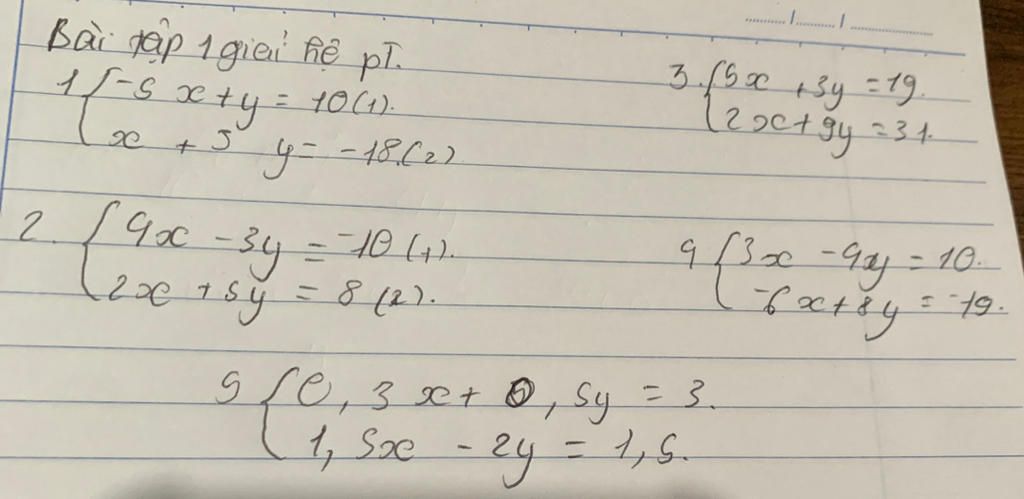 Bài tập 1 giải hệ pT.
1 { -5x + y = 10 (1).
x + 5 y = -18. (2)
3. { 5x + 3y = 19.
2x + 9y = 31.
2. { 4x - 3y = -10 (1).
2x + 5y = 8 (2).
4 { 3x - 4y = 10.
-6x + 8y = -19.
5 { 0,3x + 0,5y = 3.
1,5x - 2y = 1,5.